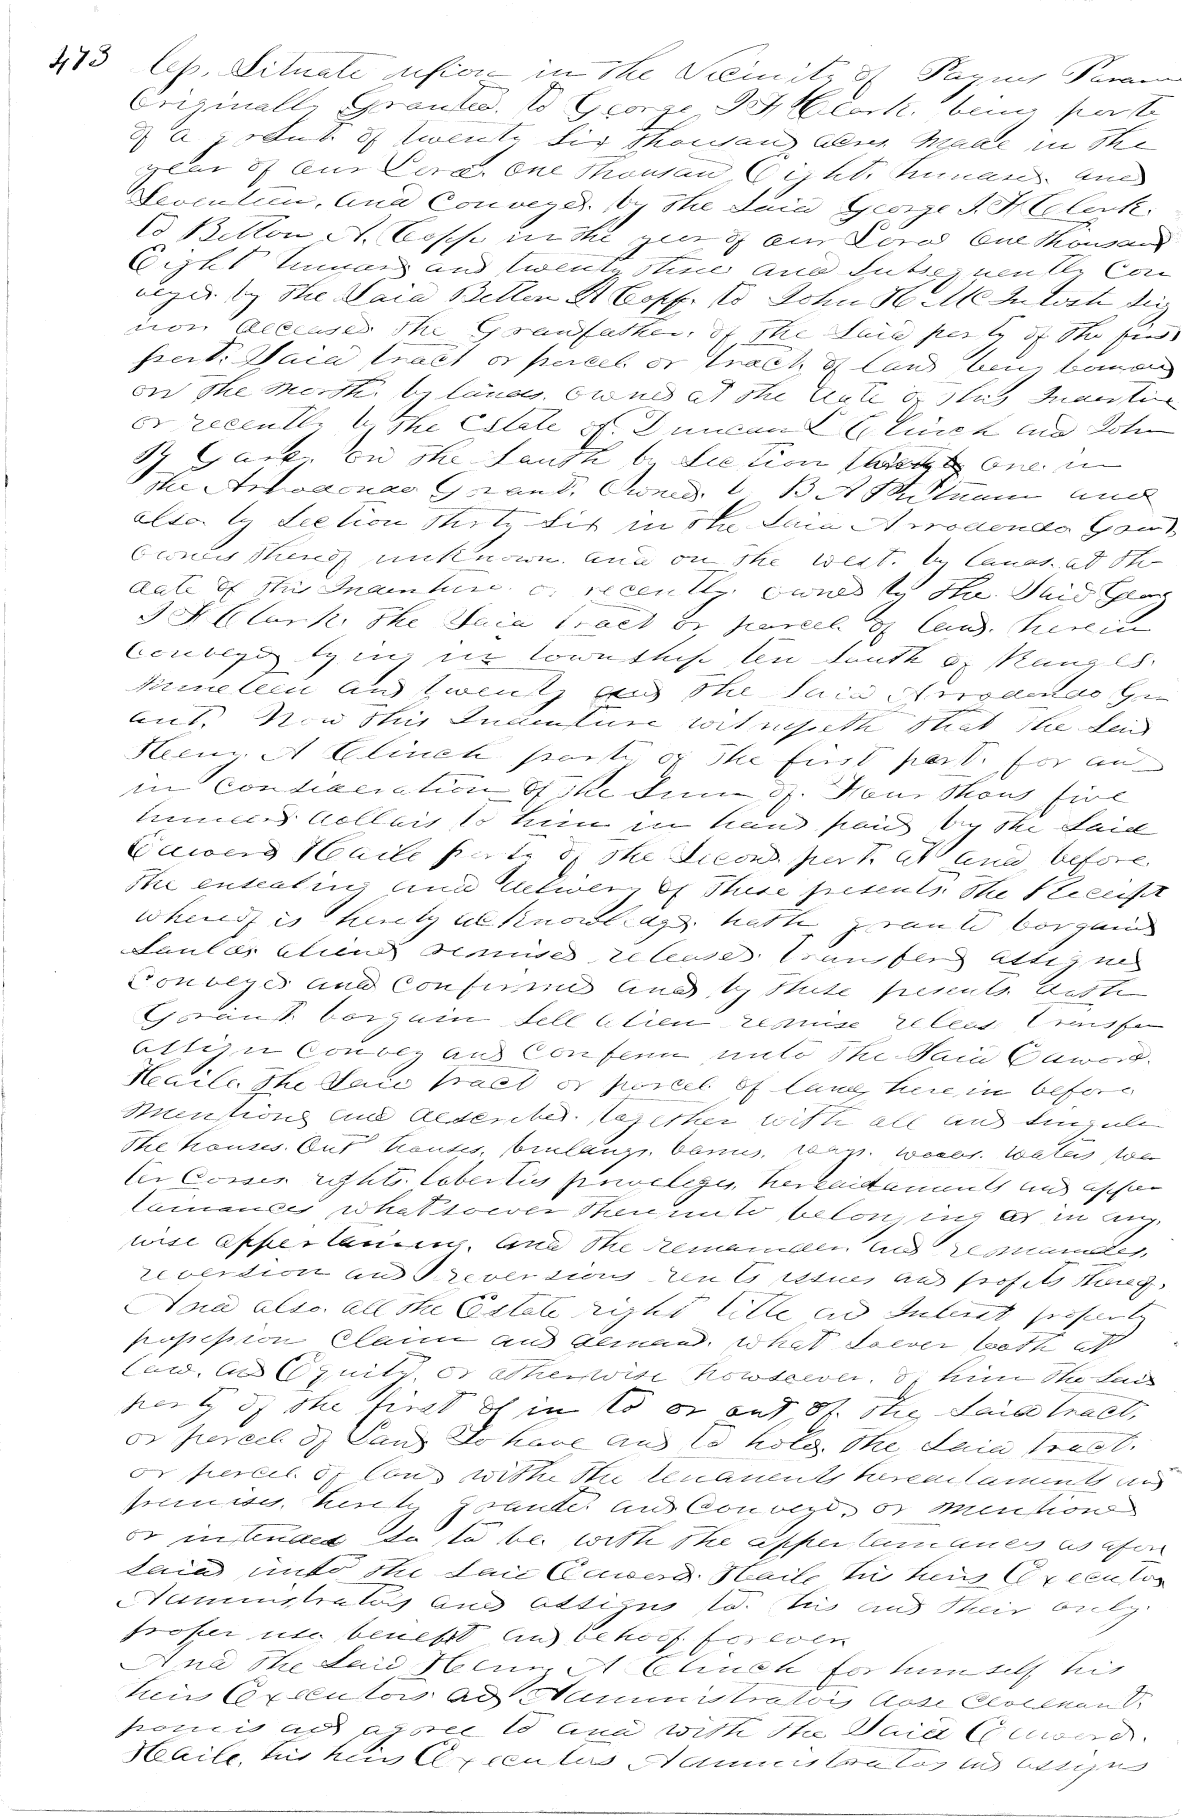 473 less, Situate upon in the Vicinity of Paynes
Originally Granted to George I F Clark being parte
of a grant of twenty Six thousand acres made in the
year of our Lord One thousand Eight hundred and
Seventeen, and Conveyed by the Said George I. F Clark.
to Belton A. Copp in the year of our Lord One thousand
Eight hundred and twenty three and Subsequently Con
veyed by the Said Belton A Copp to John H McIntosh
deceased the Grandfather of the Said party of the first
part. Said tract or parcel or tract of land being bounded
on the North by lands owned at the date of this Indenture
or recently by the Estate of Duncan L Clinch and John
on the South by Section thirty one in
the Arredondo Grant. Owned by B A Putnam and
also by Section thirty Six in the Said Arredondo Grant
owners thereof unknown and on the west. by lands at the
date of this Indenture or recently owned by the Said Georg
I F Clark. The Said tract or parcel of land herein
Conveyed lying in township ten South of Ranges
Nineteen and twenty and the Said Arredondo Gr
ant. Now this Indenture witnesseth that the Said
Henry A Clinch party of the first part. for and
in Consideration of the Sum of. Four Thous five
hundred dollars to him in hand paid by the Said
Edward Haile party of the Second part. at and before
the ensealing and delivery of these presents the Receipt
whereof is hereby acknowledged hath granted bargained
aliened remised released transferd assigned
Conveyed and Confirmed and by these presents doth
Grant bargain Sell alien remise releas transfer
assign Convey and Confirm unto the Said Edward.
Haile. the Said tract or parcel of land here in before
mentioned and described. together with all and Singular
the houses. Out houses, buildings. barns. ways. woods. waters wa
ter Corses rights liberties priveleges, hereditaments and apper
tainances whatsoever thereunto belonging or in any
wise appertaining. and the remainder and remainders,
reversion and reversions rents issues and profits thereof.
And also. all the Estate right title and Interest property
possession Claim and demand what Soever both at
law. and Equity. or otherwise howsoever. of him the Said
party of the first of in to or out of the Said tract,
or parcel of Land To have and to hold. the Said tract.
or parcel of land withe the tenaments hereditaments and
premises. hereby granted and Conveyed, or mentioned
or intended So to be. with the appertainances as afore
Said unto the Said Edward Haile his heirs Executors
Administrators and assigns to. his and their only.
proper use benefit and behoof forever
And the Said Henry A Clinch for himself his
heirs Executors and Administrators dose Covenant.
promis and agree to and with the Said Edward.
Haile, his heirs Executors Administrators and assigns